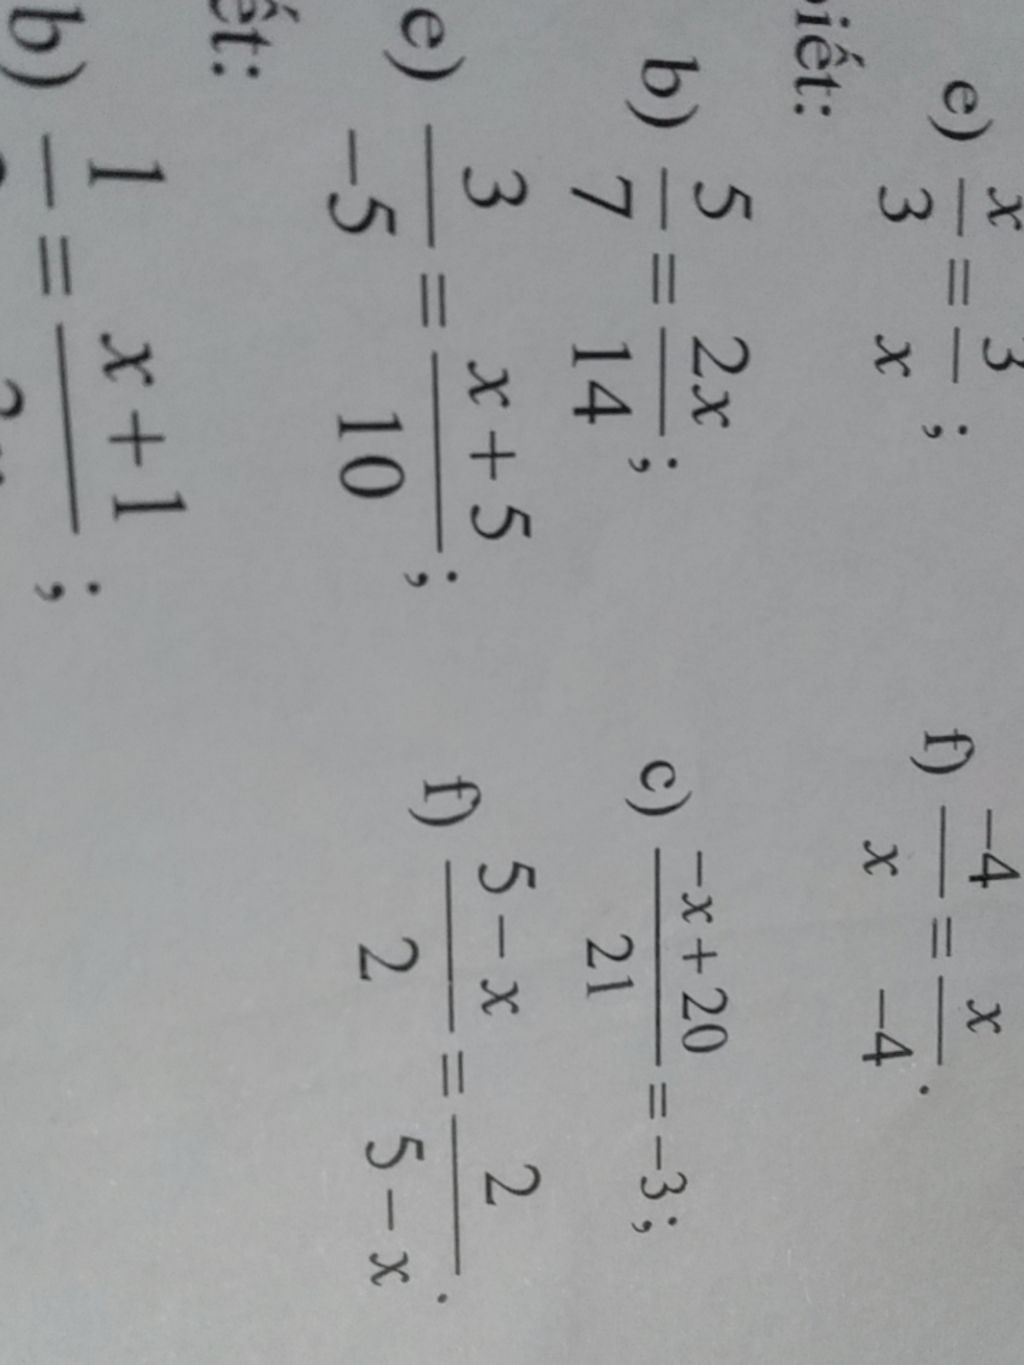 e) x/3 = 3/x; f) -4/x = x/-4.
iết:
b) 5/7 = 2x/14; c) (-x+20)/21 = -3;
e) 3/-5 = (x+5)/10; f) (5-x)/2 = 2/(5-x).
ết:
b) 1/ = (x+1)/ ;